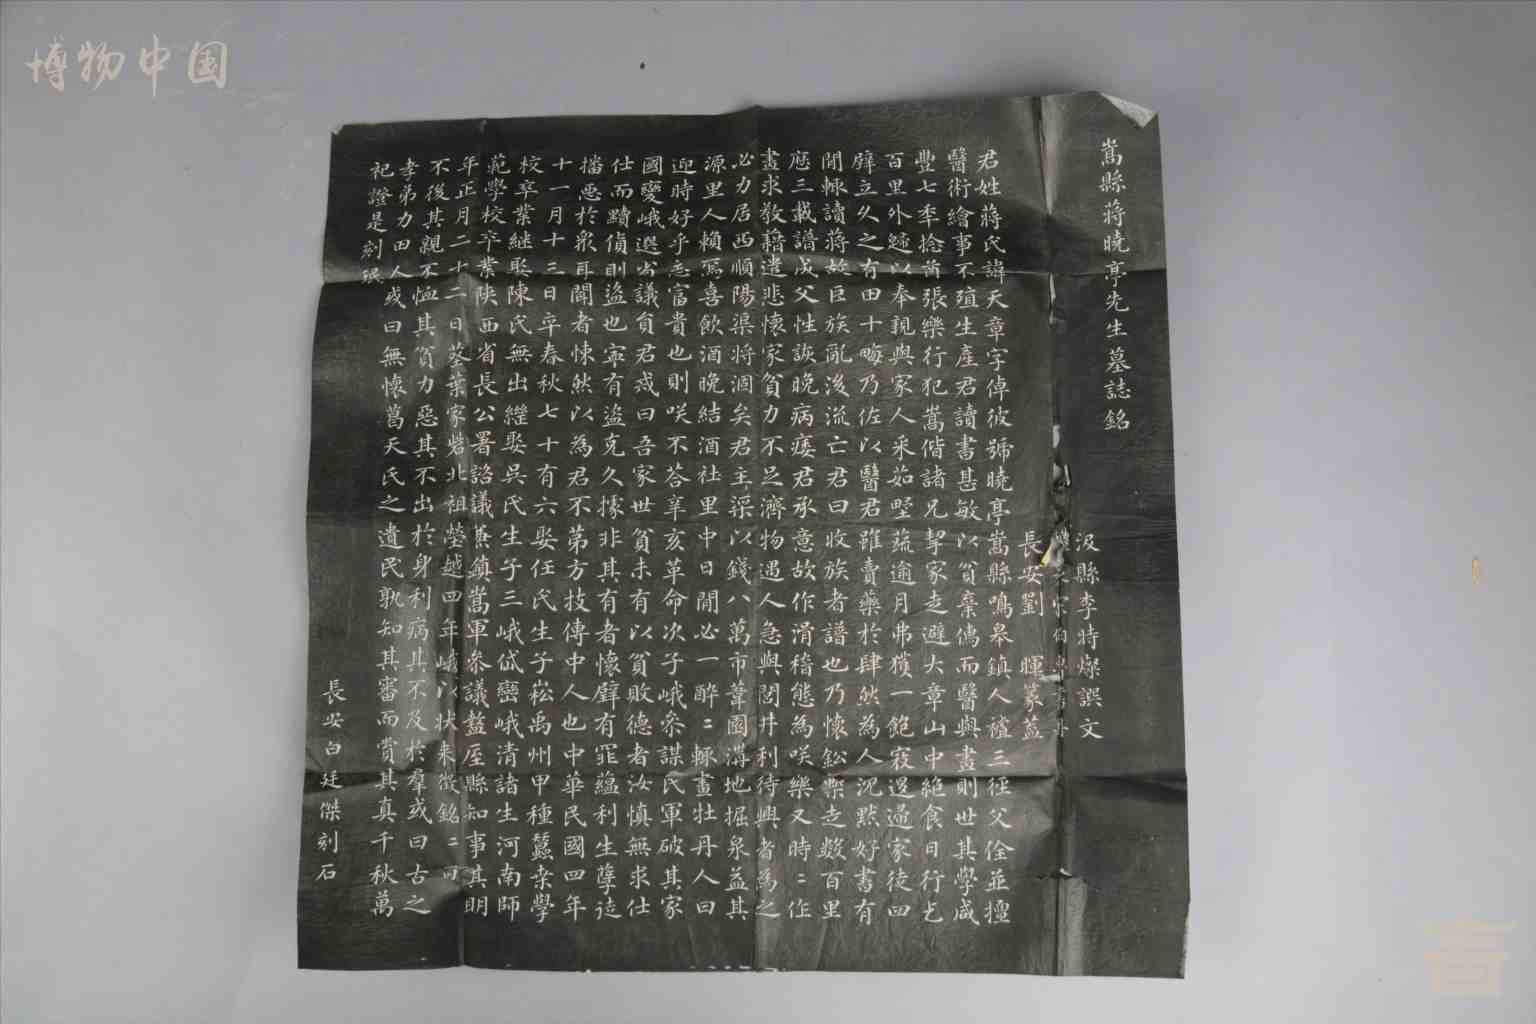 博物中国
嵩縣蔣曉亭先生墓誌銘
汲縣李時燦譔文
長安劉暉篆蓋
君姓蔣氏諱天章字倬彼號曉亭嵩縣鳴皋鎮人祖三徑父佺並擅
醫術繪事不殖生產君讀書甚敏以貧棄儒而醫與畫則世其學咸
豐七年捻酋張樂行犯嵩偕諸兄挈家走避大章山中絶食日行乞
百里外歸以奉親與家人采茹野蔬逾月弗獲一飽寇退過家徒四
壁立久之有田十畮乃佐以醫君雖賣藥於肆然為人沉默好書有
閒輒讀蔣故巨族亂後流亡君曰收族者譜也乃懷鈆槧走數百里
應三載譜成父性詼晚病痿君承意故作滑稽態為咲樂又時二作
畫求教藉遣悲懷家貧力不足濟物遇人急與閭井利待興者為之
必力居西順陽渠將涸矣君主渠以錢八萬市葦園溝地掘泉益其
源里人賴焉喜飲酒晚結酒社里中日閒必一醉二輒畫牡丹人曰
迎時好乎惡富貴也則咲不荅辛亥革命次子峨參謀民軍破其家
國變峨選省議員君戒曰吾家世貧未有以貧敗德者汝慎無求仕
仕而黷偵則盜也寧有盜克久據非其有者懷璧有罪蘊利生孽徒
擋惡於眾耳聞者悚然以為君不第方技傳中人也中華民國四年
十一月十三日卒春秋七十有六娶任氏生子崧禹州甲種蠶桒學
校卒業繼娶陳氏無出繼娶吳氏生子三峨岱巒峨清諸生河南師
範學校卒業陝西省長公署諮議兼鎮嵩軍參議盩厔縣知事其明
年正月二十二日葬葉家砦北祖塋越四年峨以狀來徵銘二曰
不後其親不恤其貧力惡其不出於身利病其不及於羣或曰古之
孝弟力田人或曰無懷葛天氏之遺民孰知其審而賞其真千秋萬
祀證是刻珉
長安白廷傑刻石